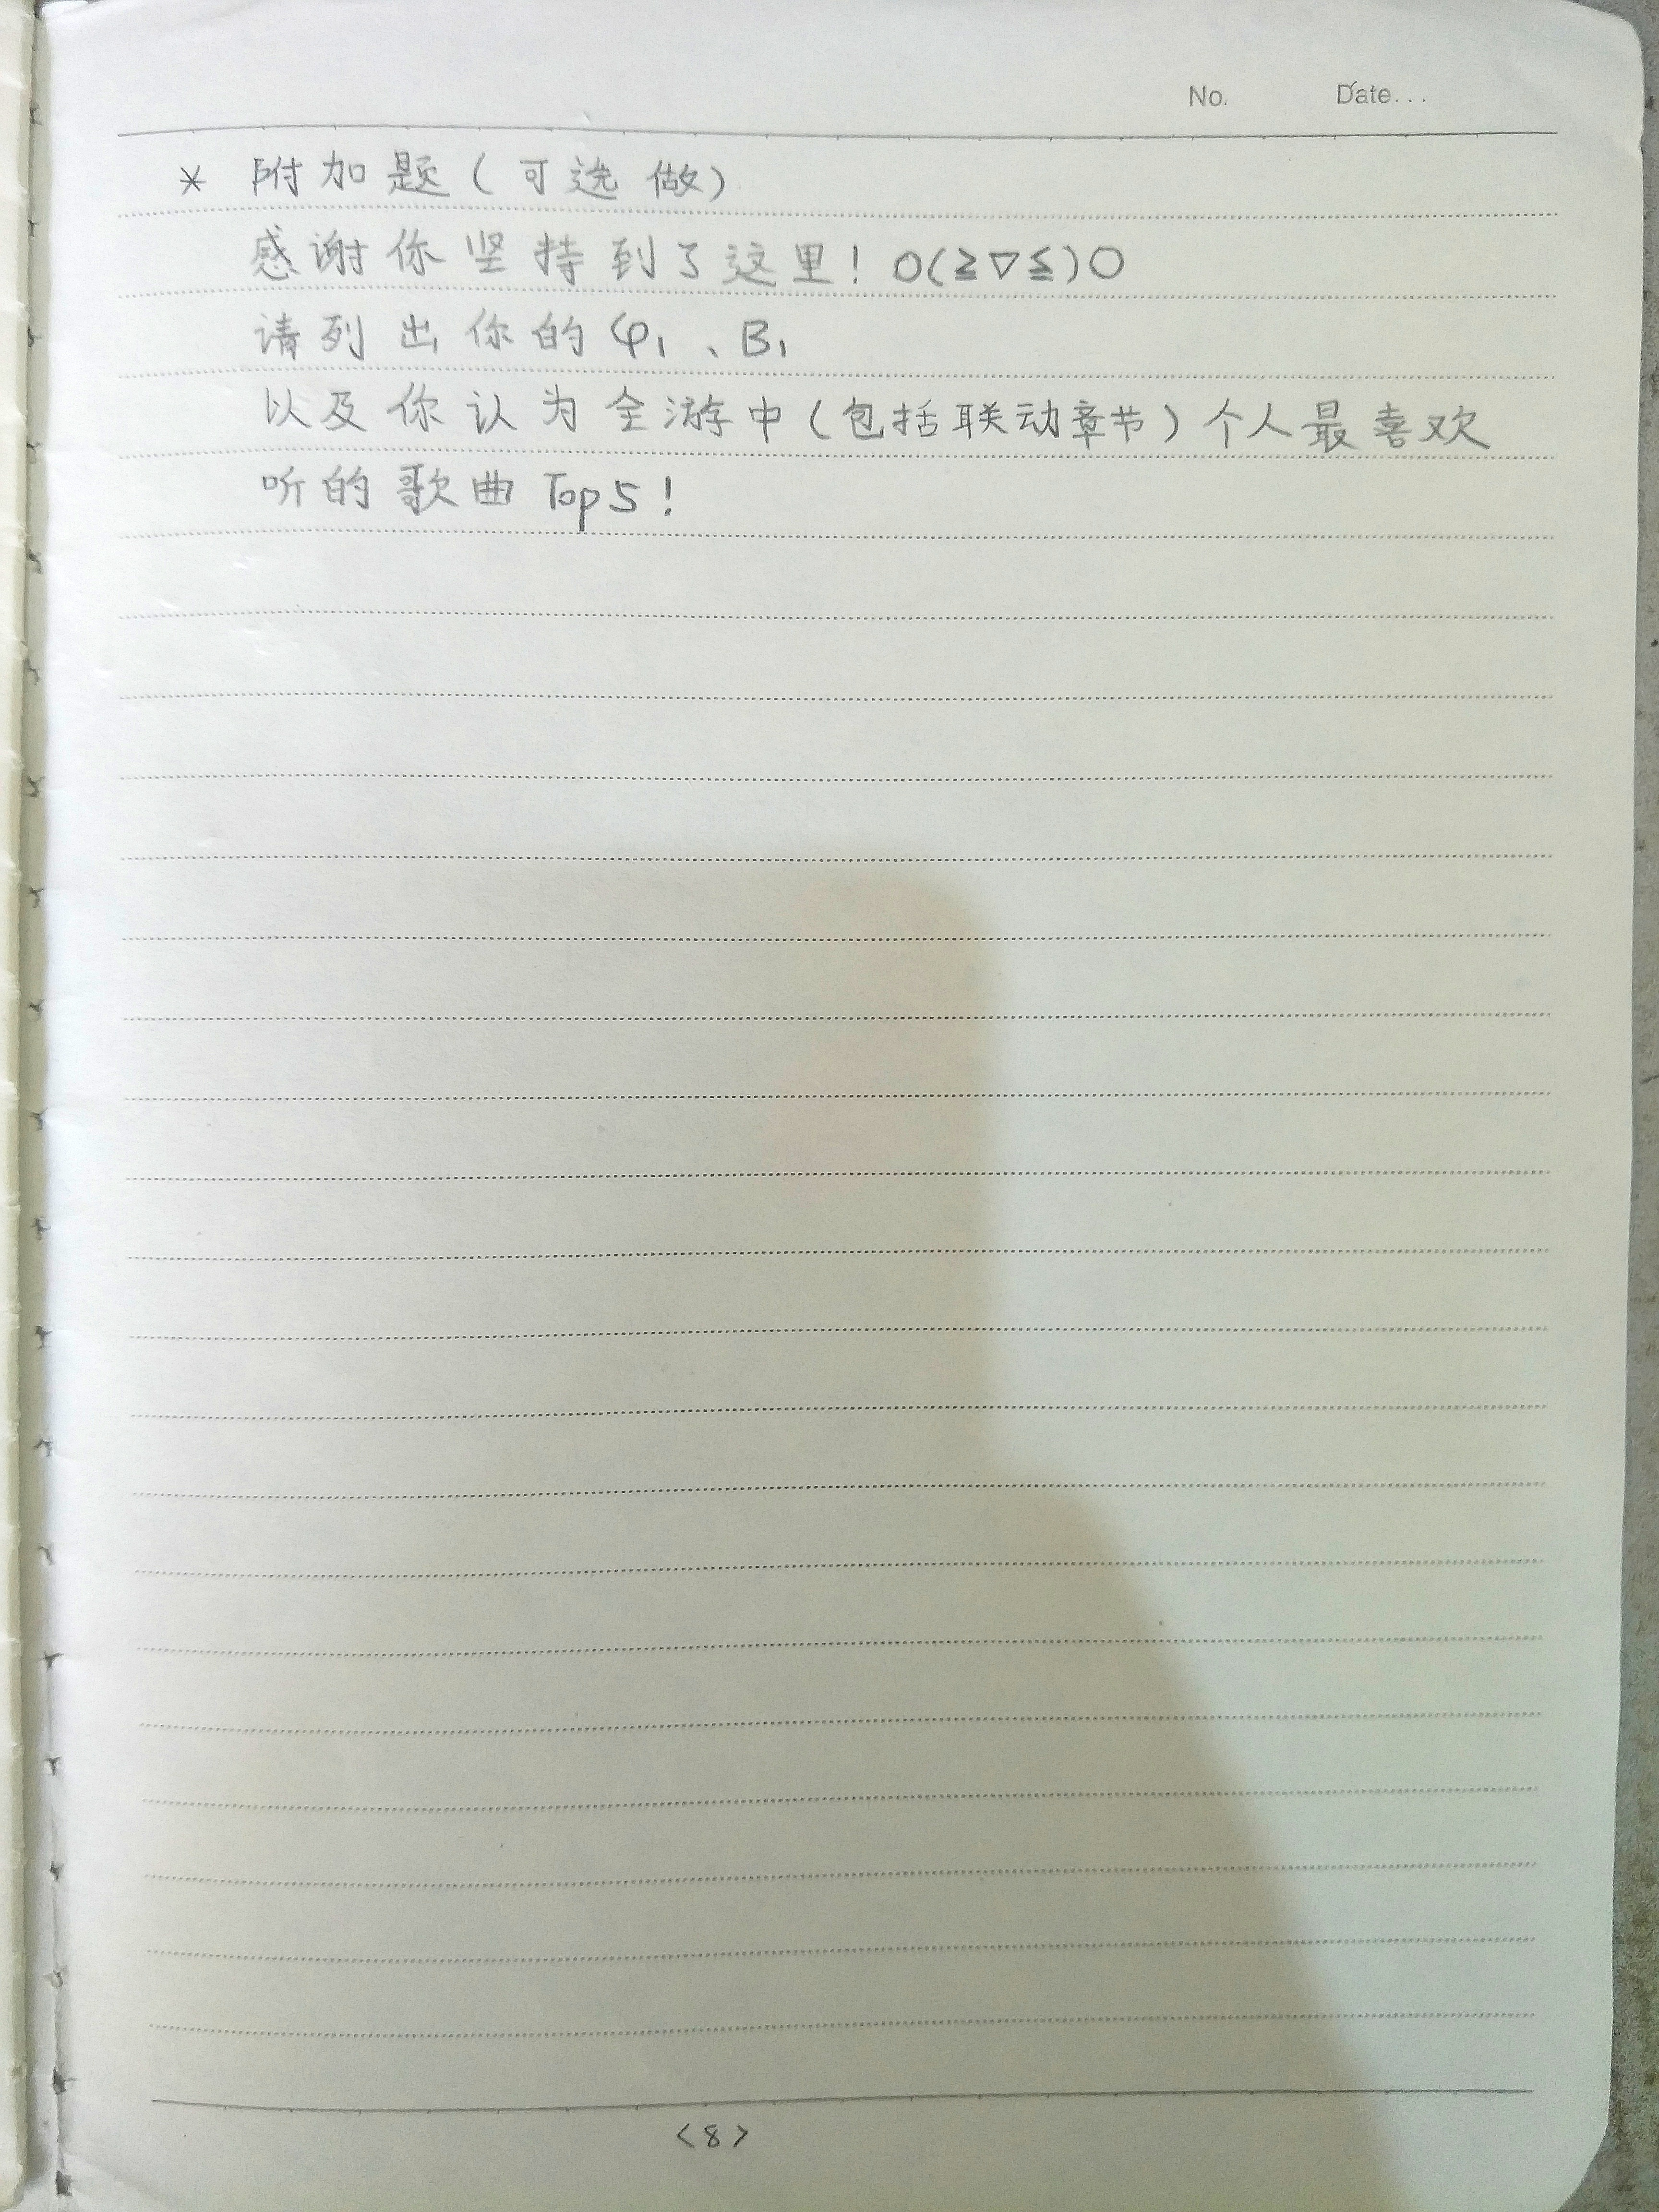 No. Date...
* 附加题(可选做)
感谢你坚持到了这里!O(≧▽≦)O
请列出你的φ₁、B₁
以及你认为全游中(包括联动章节)个人最喜欢
听的歌曲Top5!
<8>